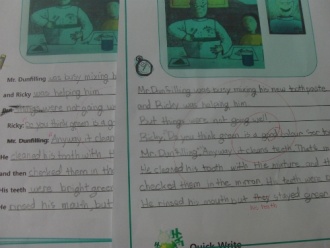 Mr. Dunfilling was busy mixing h
and Ricky was helping him.
But things were not going w
Ricky: Do you think green is a g
Mr. Dunfilling: Anyway, it clean
He cleaned his teeth with th
and then checked them in th
His teeth were bright green
He rinsed his mouth, but
Mr. Dunfilling was busy mixing his new toothpaste
and Ricky was helping him.
But things were not going well.
Ricky: Do you think green is a good colour too
Mr. Dunfilling: Anyway, it cleans teeth. That's
He cleaned his teeth with this mixture and
checked them in the mirror. teeth were
He rinsed his mouth but they stayed green.
his teeth
Quick-Write